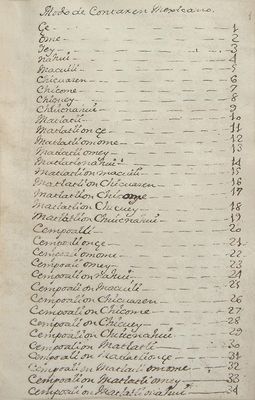 Modo de Contar en Mexicano.
Ce — 1
Ome — 2
Yey — 3
nahui — 4
Macuili — 5
Chicuasen — 6
Chicome — 7
Chicuey — 8
Chiucnahui — 9
Matlacti — 10
Matlaction çe — 11
Matlactiomome — 12
Matlactiomey — 13
Matlactionahui — 14
Matlaction macuili — 15
Matlaction Chicuasen — 16
Matlaction Chicome — 17
Matlaction Chicuey — 18
Matlaction Chiucnahui — 19
Cempoalli — 20
Cempoalionçe — 21
Cempoali omome — 22
Cempoali omey — 23
Cempoalion nahui — 24
Cempoalion Macuili — 25
Cempoalion Chicuasen — 26
Cempoalion Chicome — 27
Cempoalion Chicuey — 28
Cempoalion Chiucnahui — 29
Cempoalion Matlacti — 30
Cempoalion Matlactionçe — 31
Cempoalion Matlacti omome — 32
Cempoalion Matlactiomey — 33
Cempoalion Matlactionahui — 34